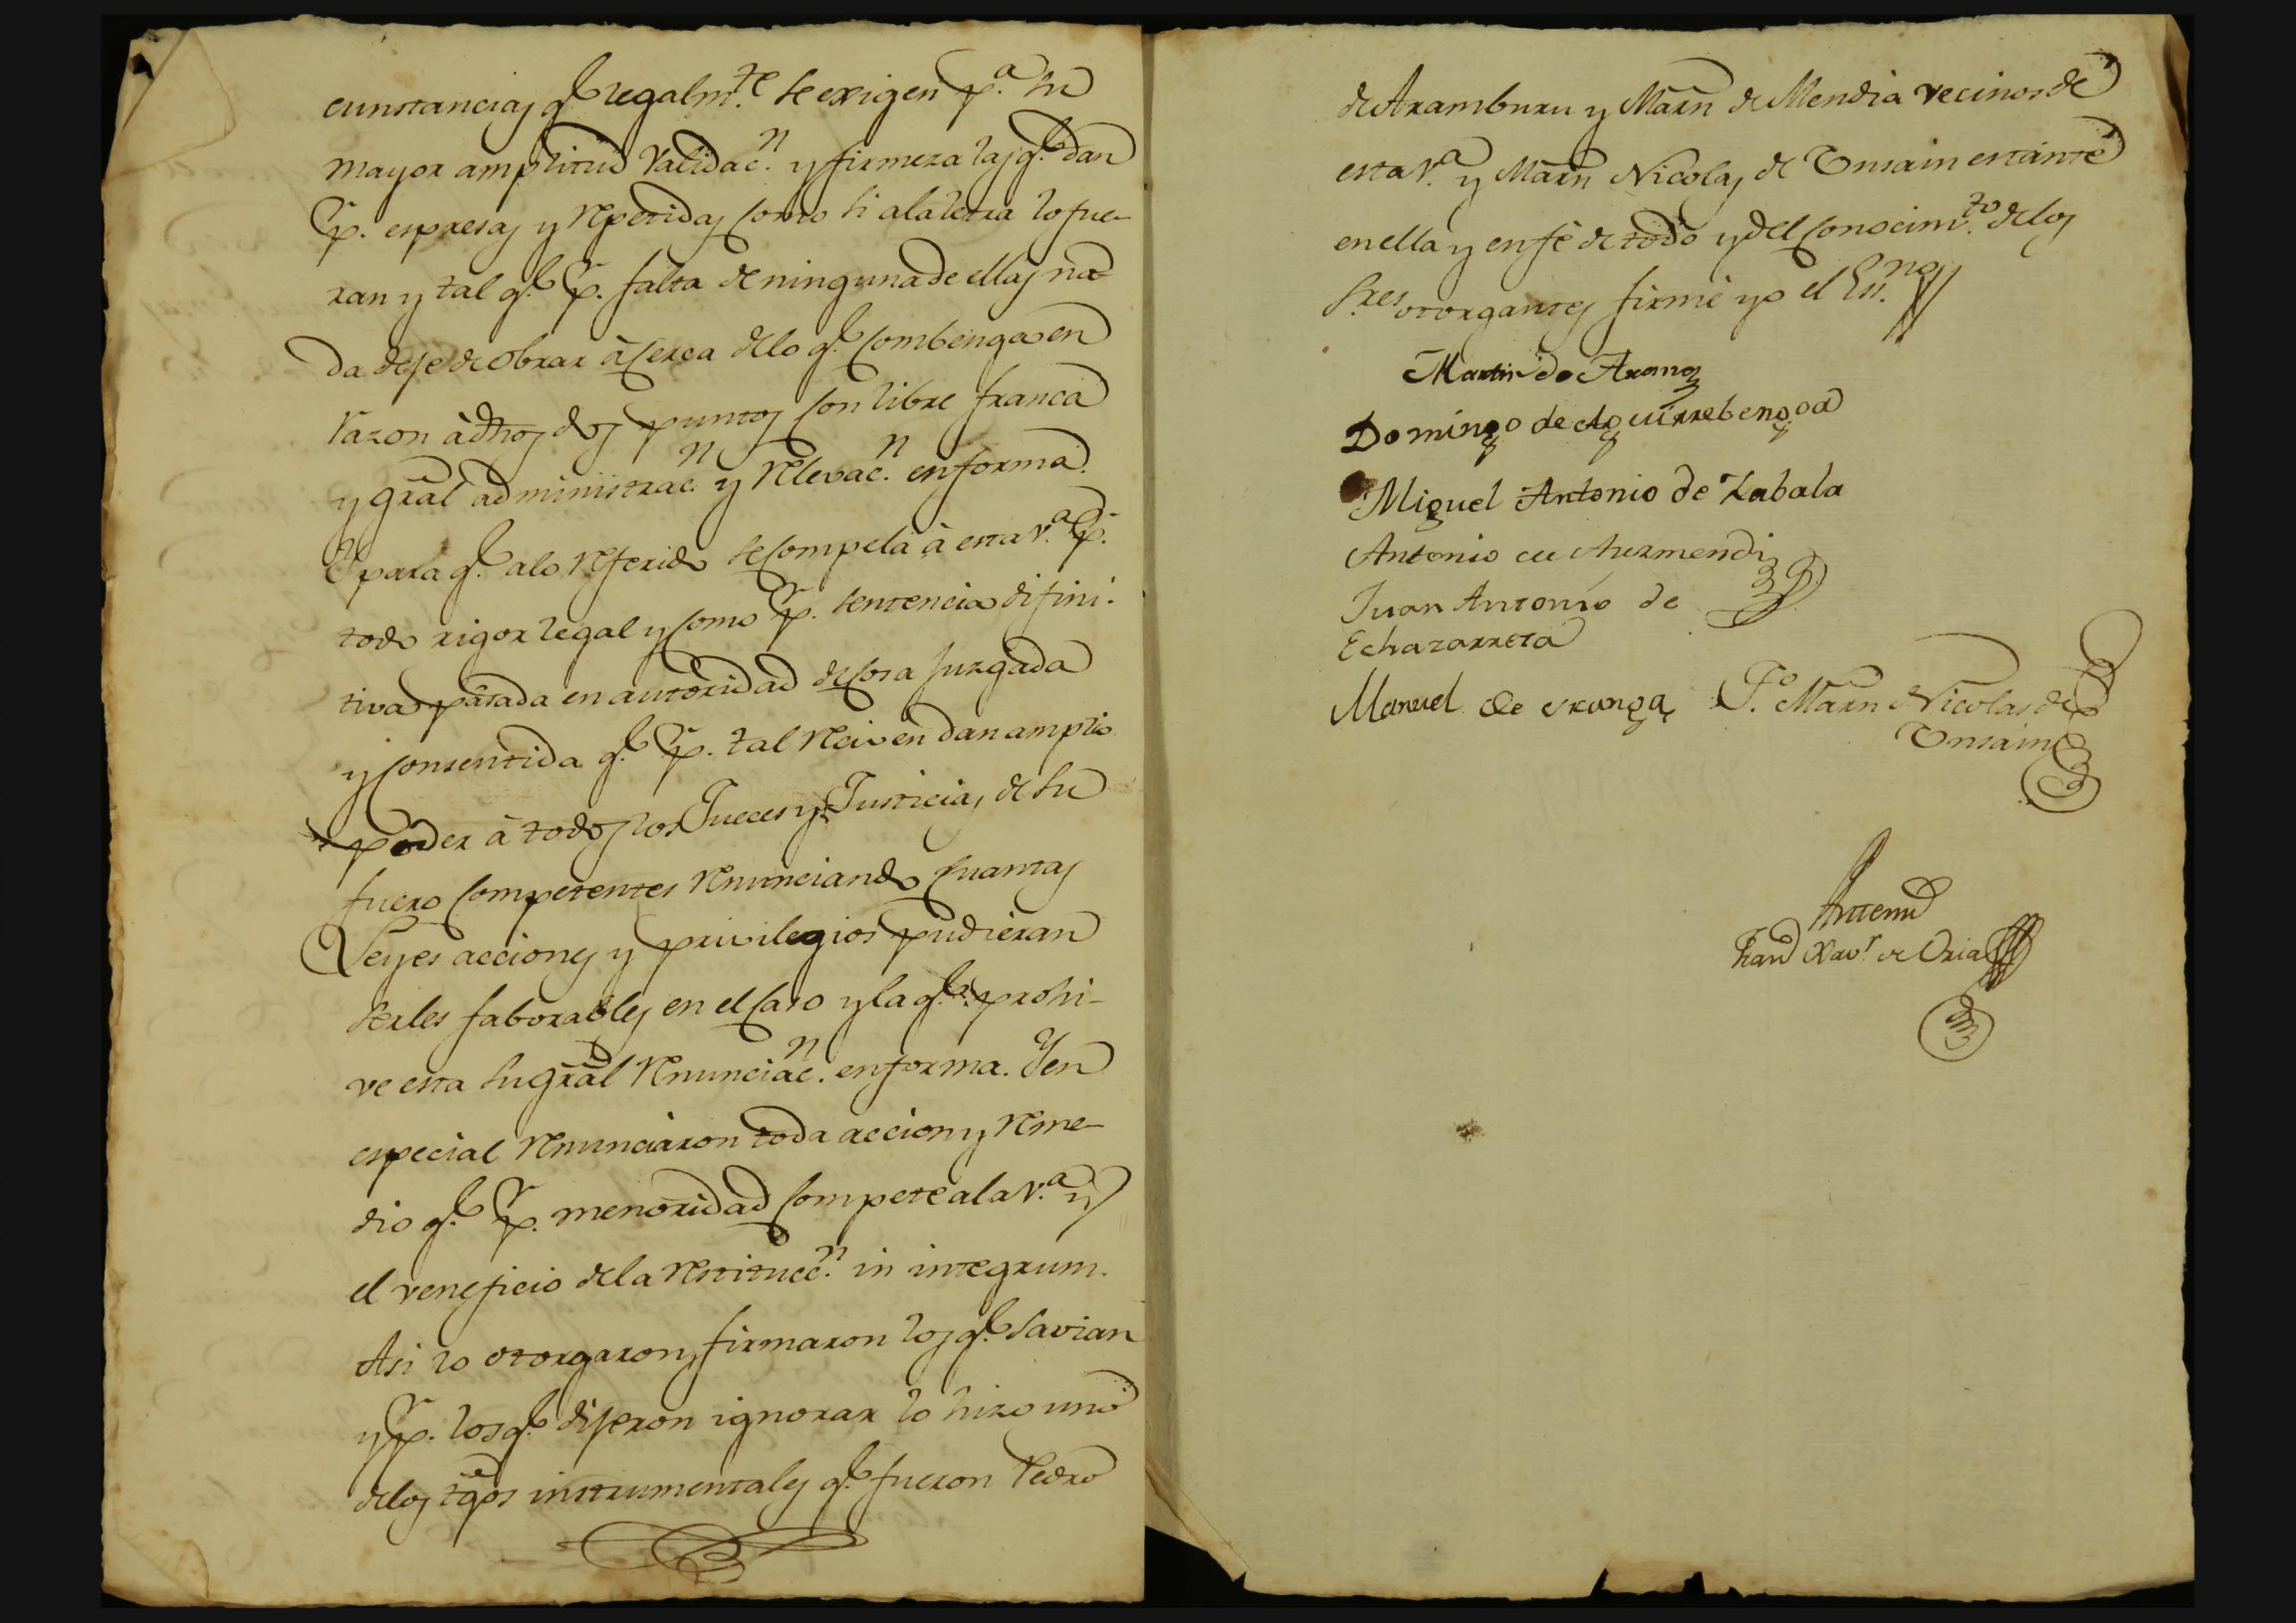 cunstancias q.e legalm.te se exigen p.a su
mayor amplitud validac.n y firmeza las q.e dan
p.r espresas y repetidas como si ala letra lo fue-
ran y tal q.e p.r falta de ninguna de ellas na-
da deje de obrar àserca delo q.e combenga en
razon à dhos dos puntos con libre franca
y gral administrac.n y relevac.n en forma.
Y para q.e alo referido se compela à esta V.a p.r
todo rigor legal y como p.r sentencia difini-
tiva pasada en autoridad de cosa juzgada
y consentida q.e p.r tal reciven dan amplio
poder à todos los Jueces y Justicias de su
fuero competentes renunciando quantas
Leyes acciones y privilegios pudieran
serles faborables en el caso y la q.e prohi-
ve esta su gral renunciac.n en forma. Y en
especial renunciaron toda accion y reme-
dio q.e p.r menoridad compete a la V.a y
el veneficio dela restitucc.n in integrum.
Asi lo otorgaron y firmaron los q.e savian
y p.r los q.e dijeron ignorar lo hizo uno
delos tgos instrumentales q.e fueron Pedro
de Aramburu y Marn de Mendia vecinos de
esta V.a y Marn Nicolas de Unsain estante
en ella y en fè de todo y del conocim.to delos
S.res otorgantes firmè yo el Ess.no
Martin de Arano
Domingo de Aguirrebengoa
Miguel Antonio de Zabala
Antonio de Aurmendi
Juan Antonio de
Echazarreta
Manuel de Aranga T.o Marn Nicolas de
Unsain
Antemi
Fran Xav.r de Oria